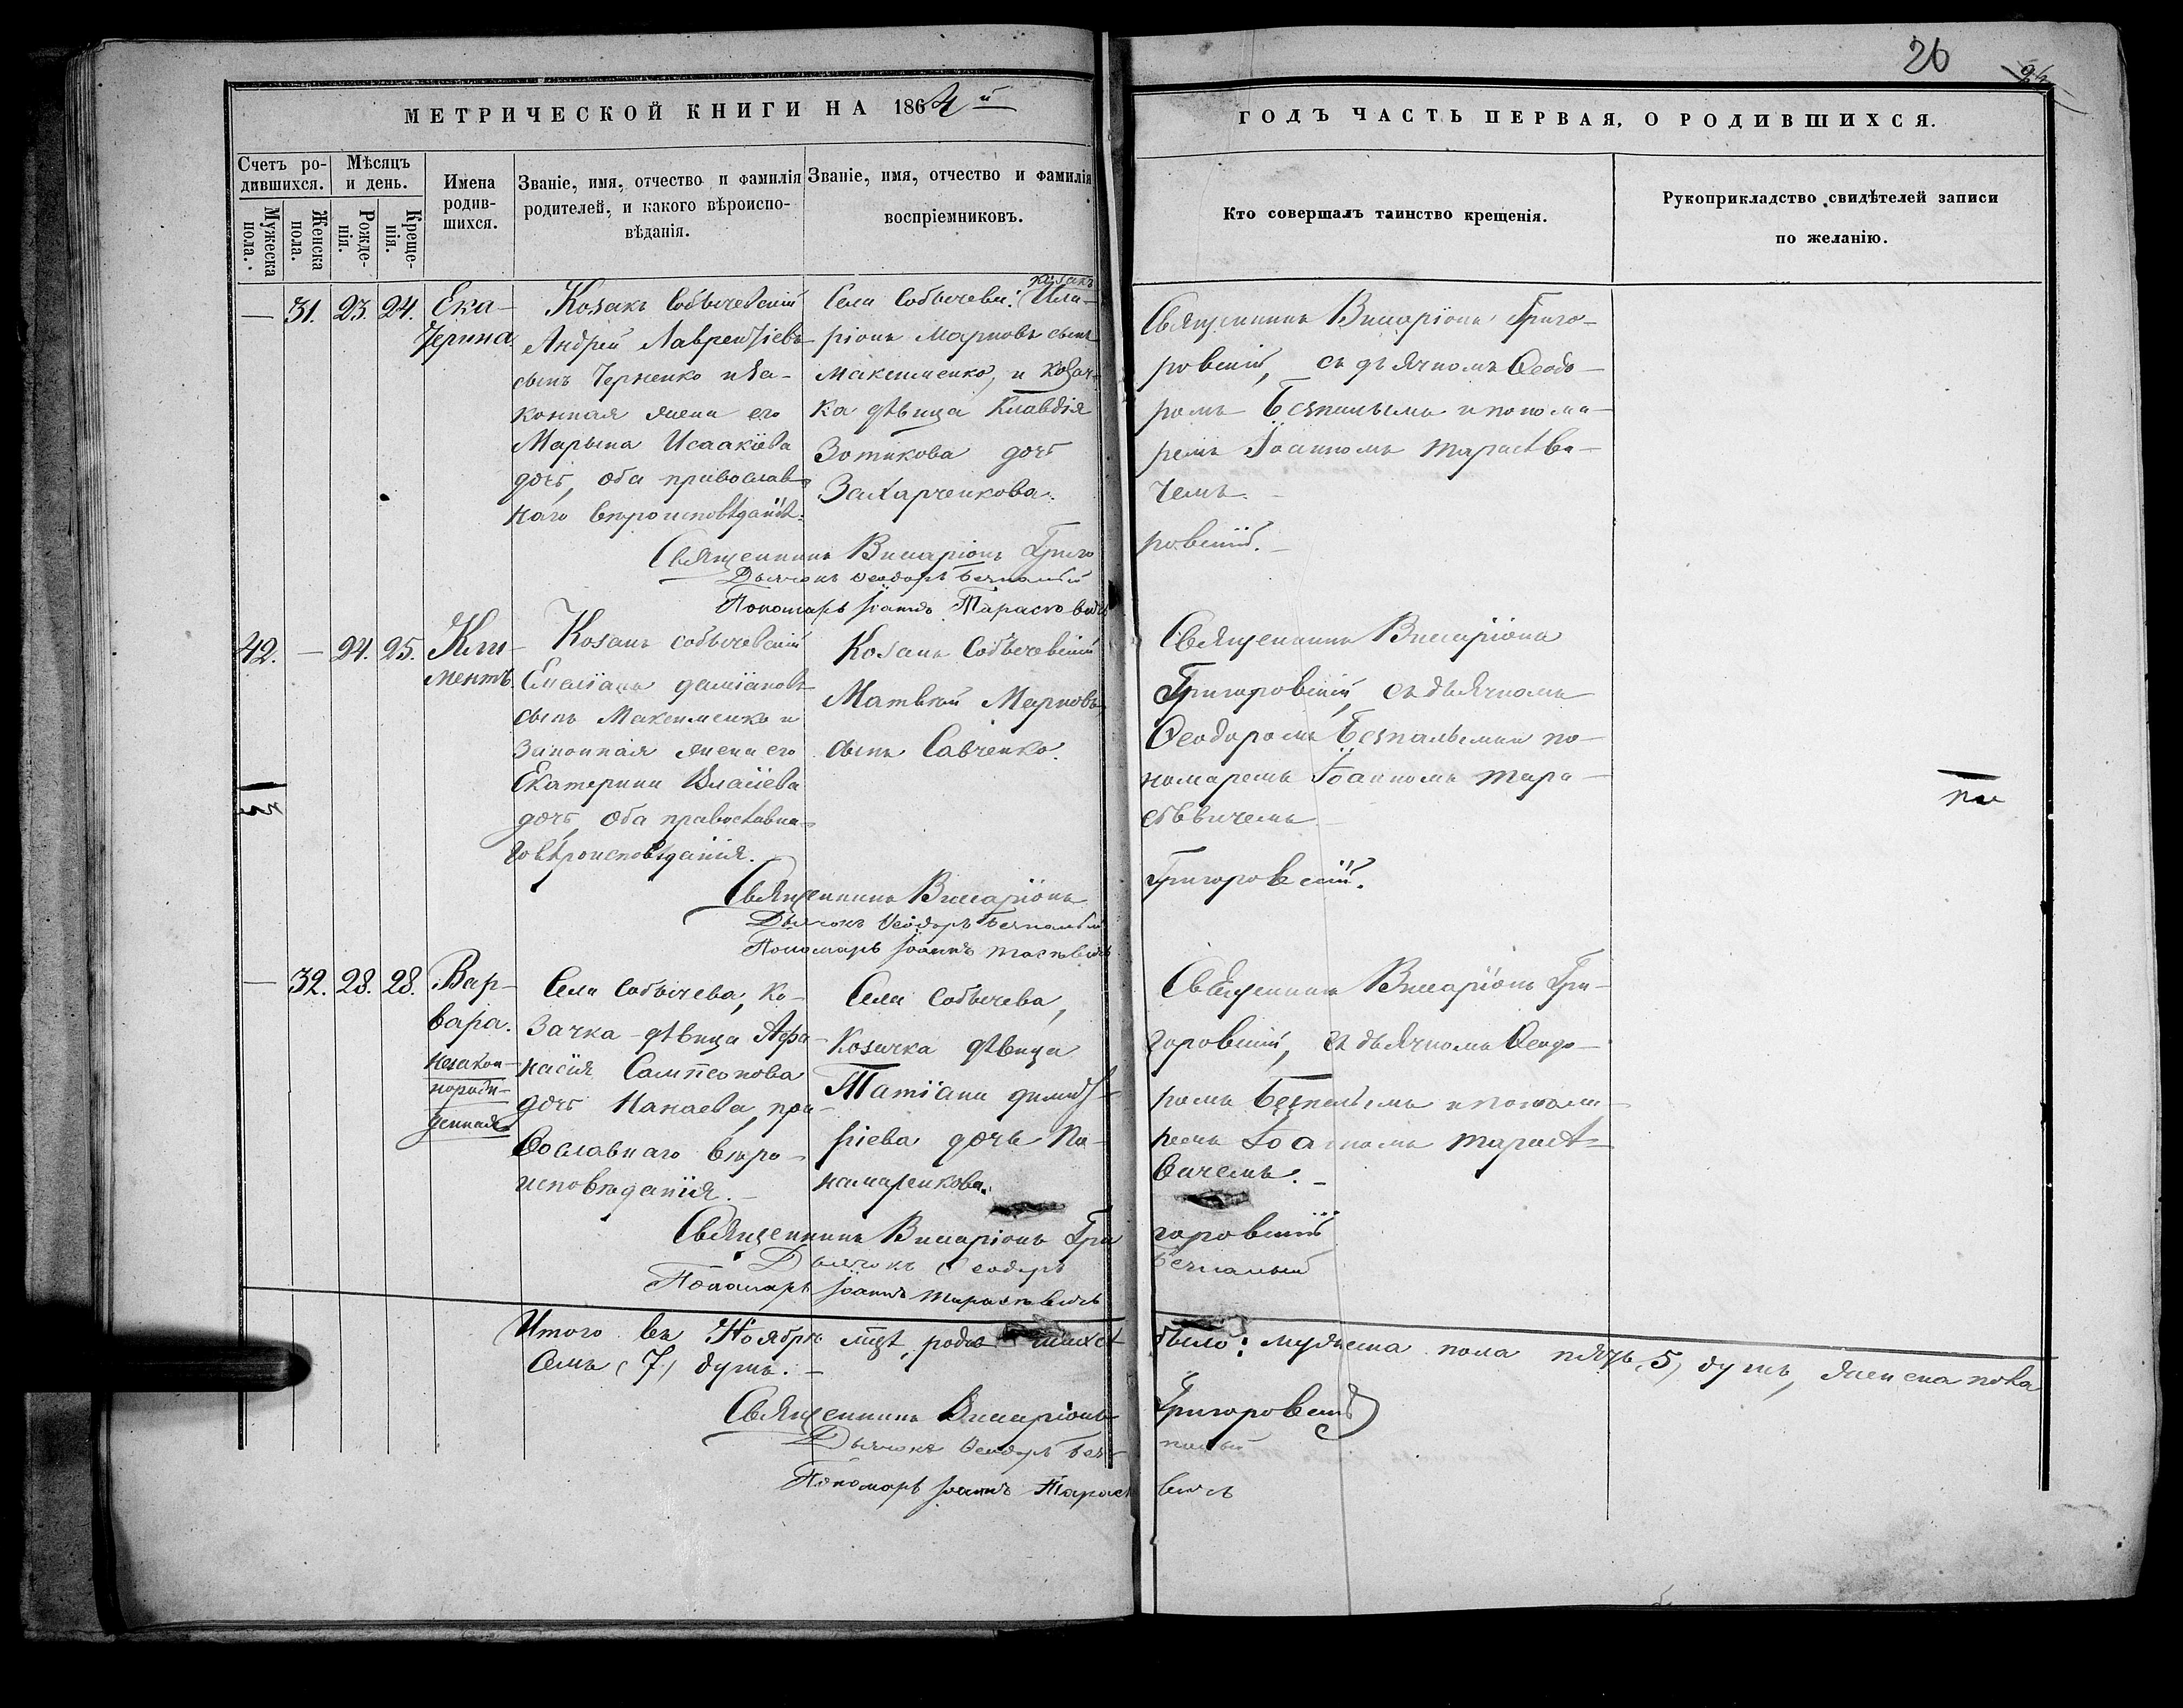 26
МЕТРИЧЕСКОЙ КНИГИ НА 1864й
ГОДЪ ЧАСТЬ ПЕРВАЯ, О РОДИВШИХСЯ.
Счетъ ро-
дившихся.
Мѣсяцъ
и день.
Мужеска
пола.
Женска
пола.
Рожде-
нія.
Креще-
нія.
Имена
родив-
шихся.
Званіе, имя, отчество и фамилія
родителей, и какого вѣроиспо-
вѣданія.
Званіе, имя, отчество и фамилія
воспріемниковъ.
Кто совершалъ таинство крещенія.
Рукоприкладство свидѣтелей записи
по желанію.
— 31. 23. 24.
Ека-
терина.
Козакъ Собычевскій
Андрей Лаврентіевъ
сынъ Черненко и за-
конная жена его
Марьина Исаакіева
дочь, оба православ-
наго вѣроисповѣданія.
козакъ
Села Собычева: Ила-
ріонъ Марковъ сынъ
Максименко, и козач-
ка дѣвица Клавдія
Зотикова дочь
Захарченкова.
Священникъ Виссаріонъ Григо-
ровскій, съ дьячкомъ Ѳеодо-
ромъ Безпалымъ и понома-
ремъ Іоанномъ Тарасѣви-
чемъ.
Священникъ Виссаріонъ Григо
ровскій.
Дьячокъ Ѳеодоръ Безпалый
Пономарь Іоаннъ Тарасѣвичъ
42. — 24. 25.
Кли-
ментъ.
Козакъ Собычевскій
Емеліанъ Даміановъ
сынъ Максименко и
законная жена его
Екатерина Власіева
дочь, оба православна-
го вѣроисповѣданія.
Козакъ Собычевскій
Матвѣй Марковъ
сынъ Савченко.
Священникъ Виссаріонъ
Григоровскій, съ дьячкомъ
Ѳеодоромъ Безпалымъ и по-
номаремъ Іоанномъ Тара-
сѣвичемъ
Священникъ Виссаріонъ
Григоровскій.
Дьячокъ Ѳеодоръ Безпалый
Пономарь Іоаннъ
— 32. 28. 28.
Вар-
вара.
незакон-
норож-
денная
Села Собычева, ко-
зачка-дѣвица Афа-
насія Сампсонова
дочь Канаева, пра-
вославнаго вѣро-
исповѣданія.
Села Собычева,
козачка дѣвица
Татіана Димит-
ріева дочь По-
намаренкова.
Священникъ Виссаріонъ Гри-
горовскій, съ дьячкомъ Ѳеодо-
ромъ Безпалымъ и понома-
ремъ Іоанномъ Тарасѣ-
вичемъ.
Священникъ Виссаріонъ Гри
горовскій
Дьячокъ Ѳеодоръ
Безпалый
Пономарь Іоаннъ Тарасѣвичъ
Итого въ Ноябрѣ мцѣ, родившихся
было: мужеска пола пять (5) душъ, женска пола
семь (7) душъ.
Священникъ Виссаріонъ
Григоровскій
Дьячокъ Ѳеодоръ Без-
палый
Пономарь Іоаннъ Тарасѣ
вичъ